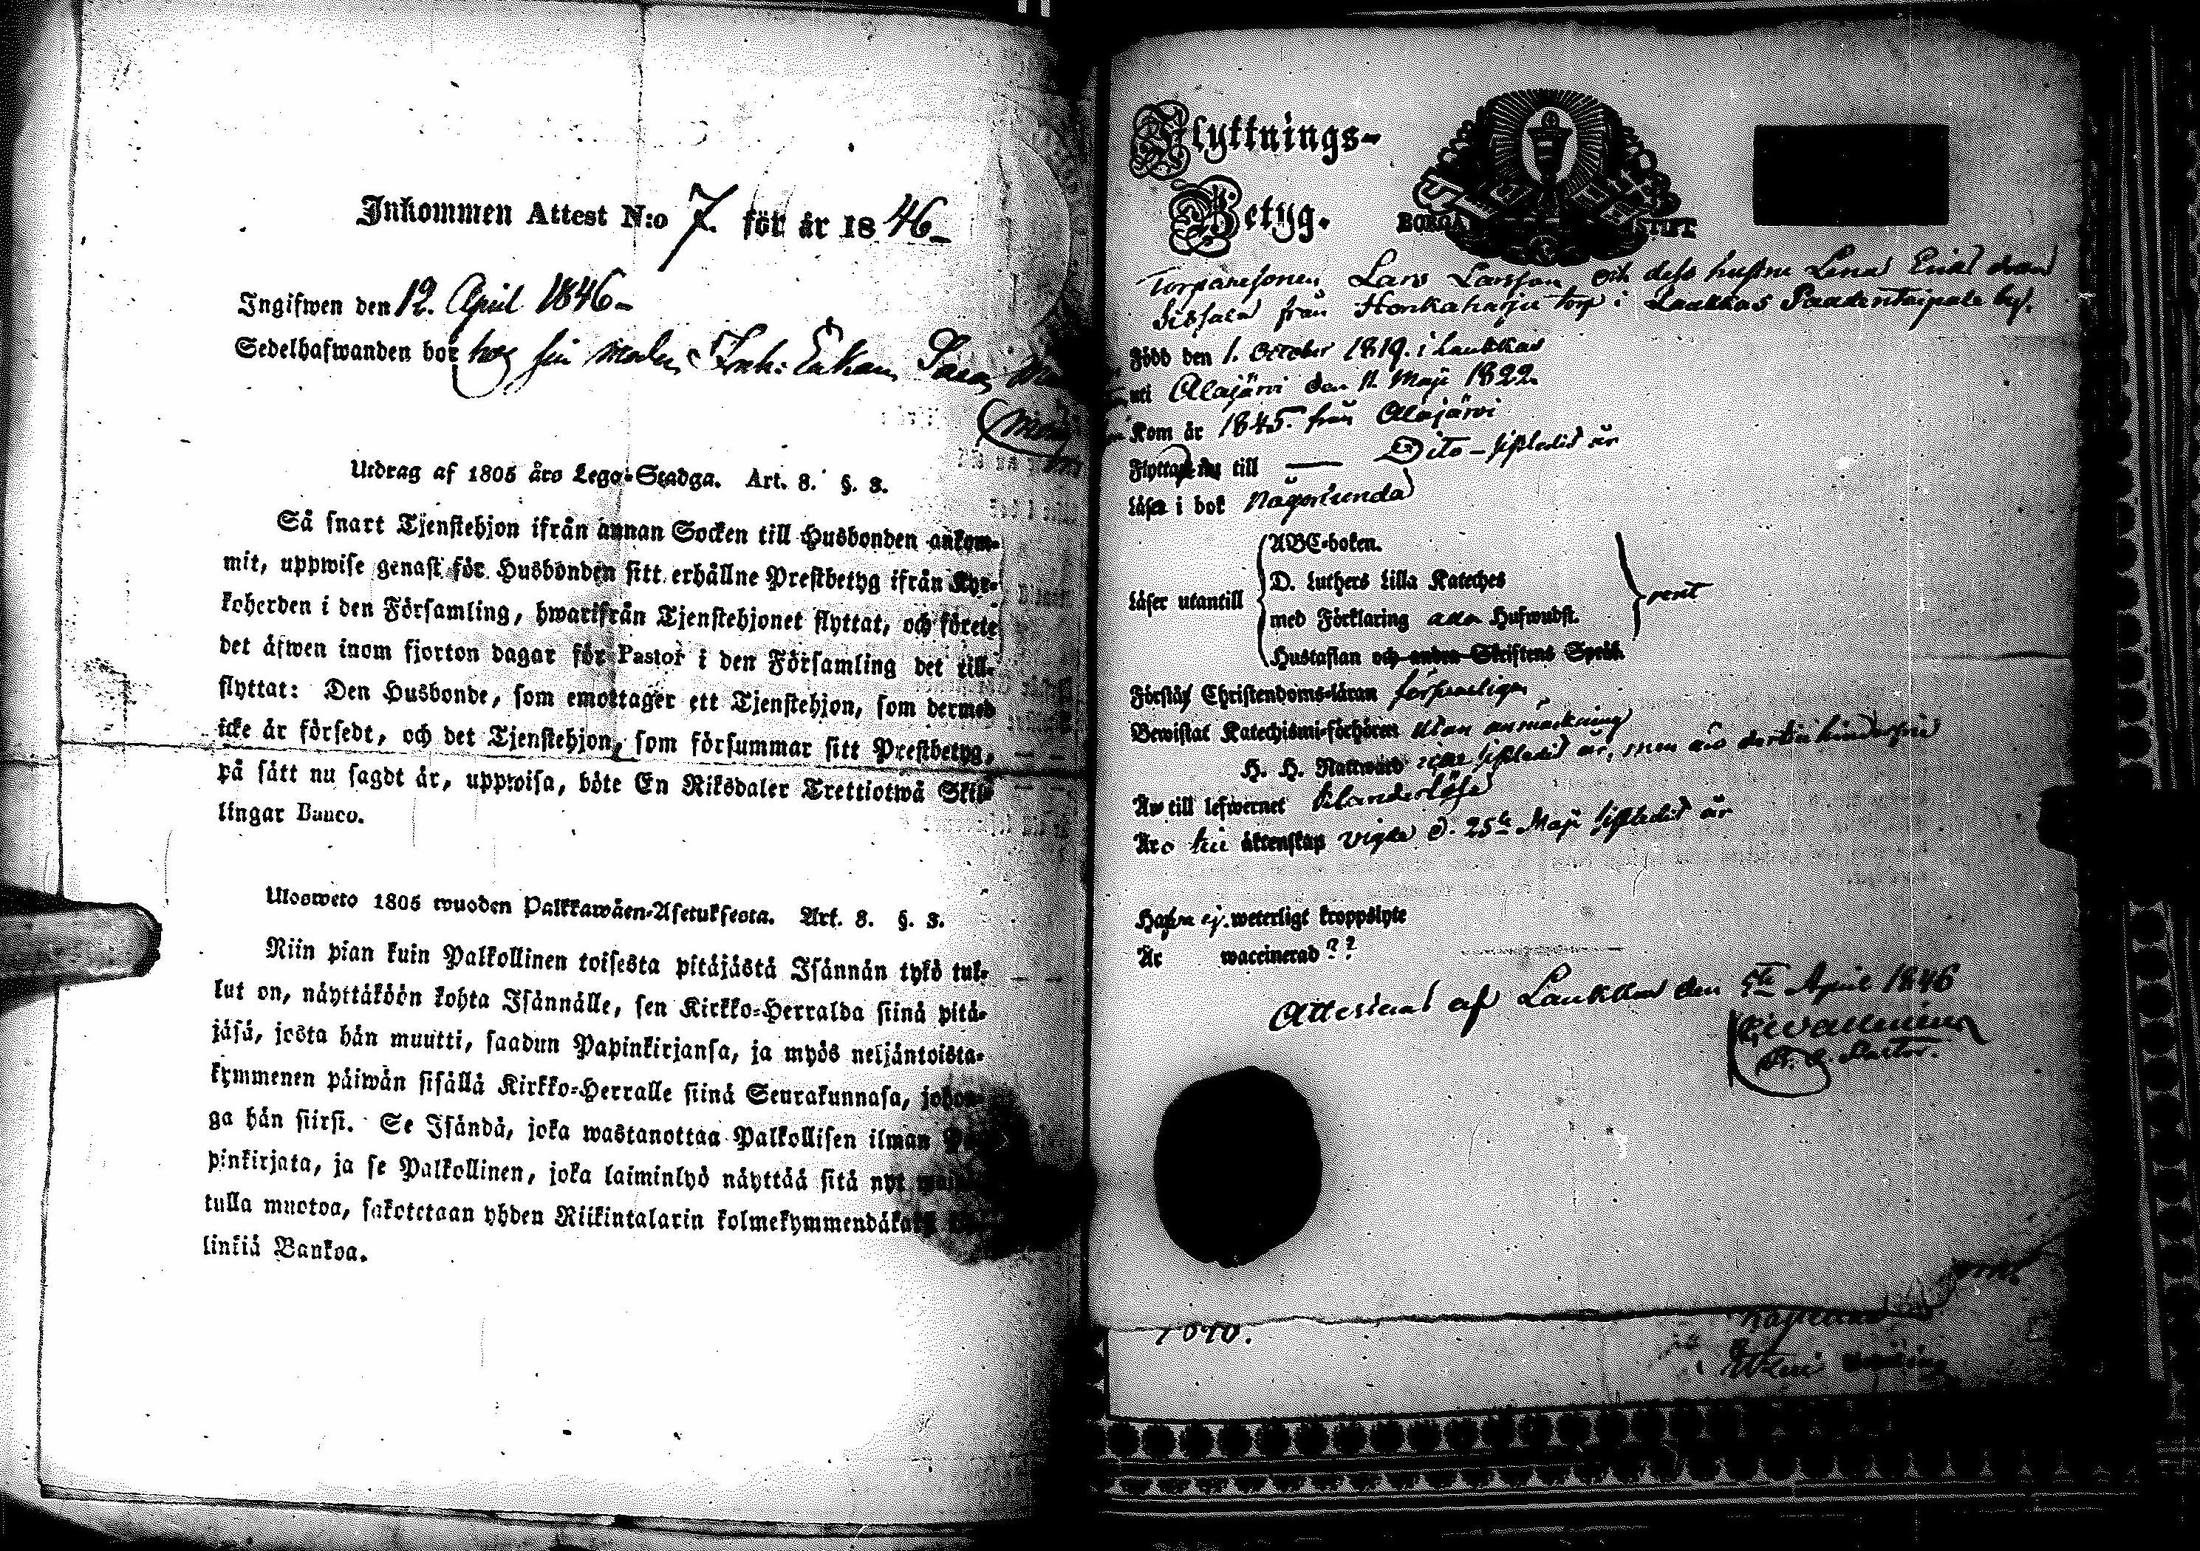 Inkommen Attest N:o 7. för år 1846
Ingifwen den 12. April 1846
Sedelhafwanden bor hos sin moder, Enk: Sara
Utdrag af 1805 års Lego-Stadga. Art. 8. §. 3.
Så snart Tjenstehjon ifrån annan Socken till Husbonden ankom-
mit, uppwise genast för Husbonden sitt erhållne Prestbetyg ifrån Kyr-
koherden i den Församling, hwarifrån Tjenstehjonet flyttat, och förete
det äfwen inom fjorton dagar för Pastor i den Församling det till-
flyttat: Den Husbonde, som emottager ett Tjenstehjon, som dermed
icke är försedt, och det Tjenstehjon, som försummar sitt Prestbetyg,
på sätt nu sagdt är, uppwisa, böte En Riksdaler Trettiotwå Skil-
lingar Banco.
Ulosweto 1805 wuoden Palkkawäen-Asetuksesta. Art. 8. §. 3.
Niin pian kuin Palkollinen toisesta pitäjästä Isännän tykö tul-
lut on, näyttäköön kohta Isännälle, sen Kirkko-Herralda siinä pitä-
jäsä, josta hän muutti, saadun Papinkirjansa, ja myös neljäntoista-
kymmenen päiwän sisällä Kirkko-Herralle siinä Seurakunnasa, johon-
ga hän siirsi. Se Isändä, joka wastanottaa Palkollisen ilman Pa-
pinkirjata, ja se Palkollinen, joka laiminlyö näyttää sitä nyt
tulla muotoa, sakotetaan yhden Riikintalarin kolmekymmendäkaksi
linkiä Bankoa.
Flyttnings-
Betyg.
BORGÅ STIFT
Torparesonen Lars Larsson och dess hustru Lena Erics
från Honkaharju torp i Laukkas Paadentaipale by.
Född den 1. October 1819. i Laukkas
uti Alajärvi den 11 Maji 1822
Kom år 1845. från Alajärvi
Flytta nu till — Dito - sistledit år
Läser i bok någorlunda
ABC-boken.
D. Luthers Lilla Kateches
Läser utantill
med Förklaring Hufwudst.
rent
Hustaflan och andra Skriftens Språk.
Förstår Christendoms-läran försvarligen
Bewistat Katechismi-förhören utan anmärkning
H. H. Nattward sistledit år, men äro dertill hinderfrie
Är till lefwernet klanderlöse
Äro till äktenskap vigde d. 25te Maji sistledit år
Hafva ej weterligt kroppslyte
Är waccinerad ??
Attesterar af Laukkas den 5te April 1846